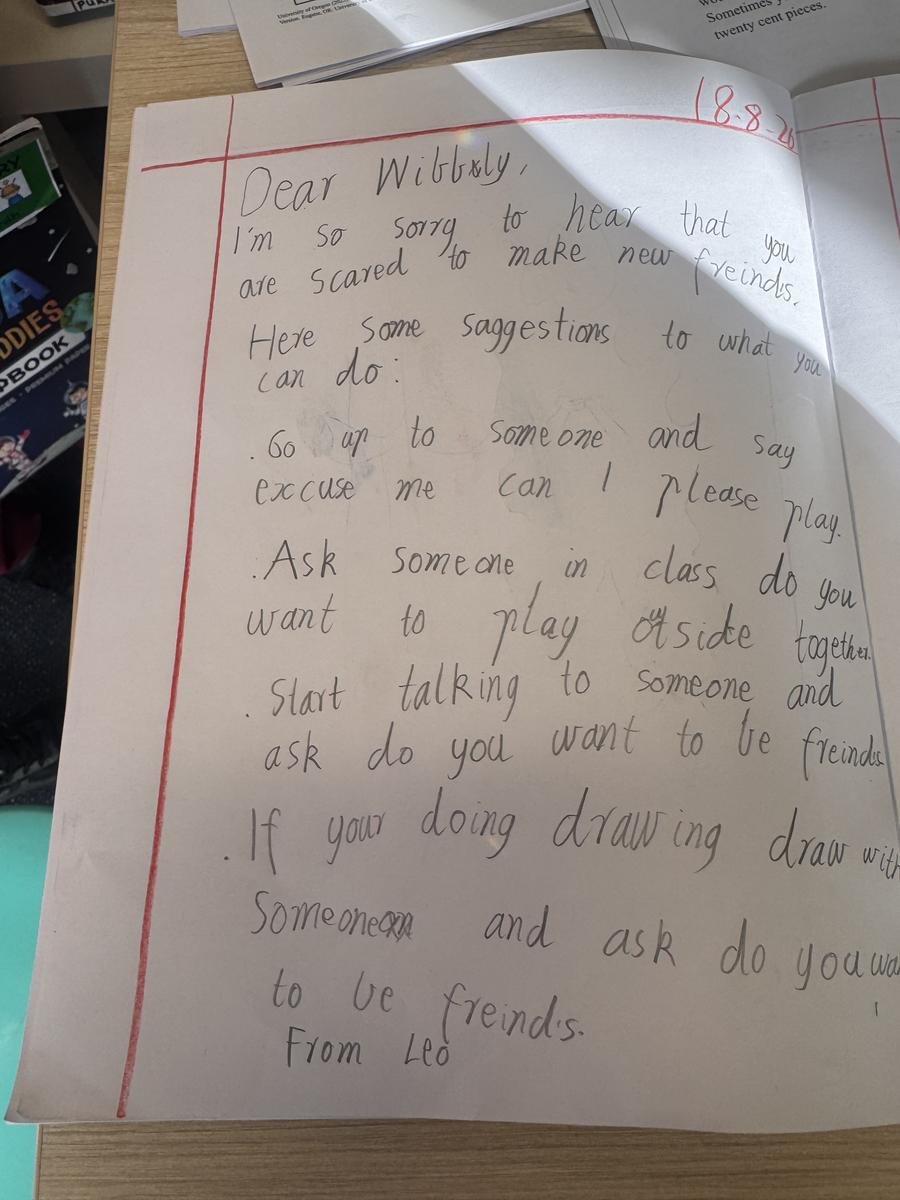 University of Oregon
Version. Eugene, OR: University
Sometimes y
twenty cent pieces.
DDIES
PBOOK
18.8-26
Dear Wibbly,
I'm so sorry to hear that you
are scared to make new freinds.
Here some saggestions to what you
can do:
. Go up to someone and say
exccuse me can I please play.
. Ask someone in class do you
want to play outside together.
. Start talking to someone and
ask do you want to be freinds
. If your doing drawing draw with
Someone and ask do you wa
to be freinds.
From Leo